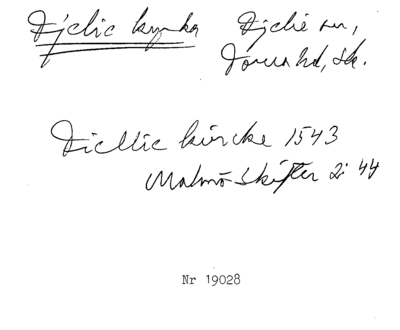 Fjelie kyrka Fjelie sn,
Torna hd, Sk.
Fiellie kürcke 1543
Malmö Skifter 2: 44
Nr 19028